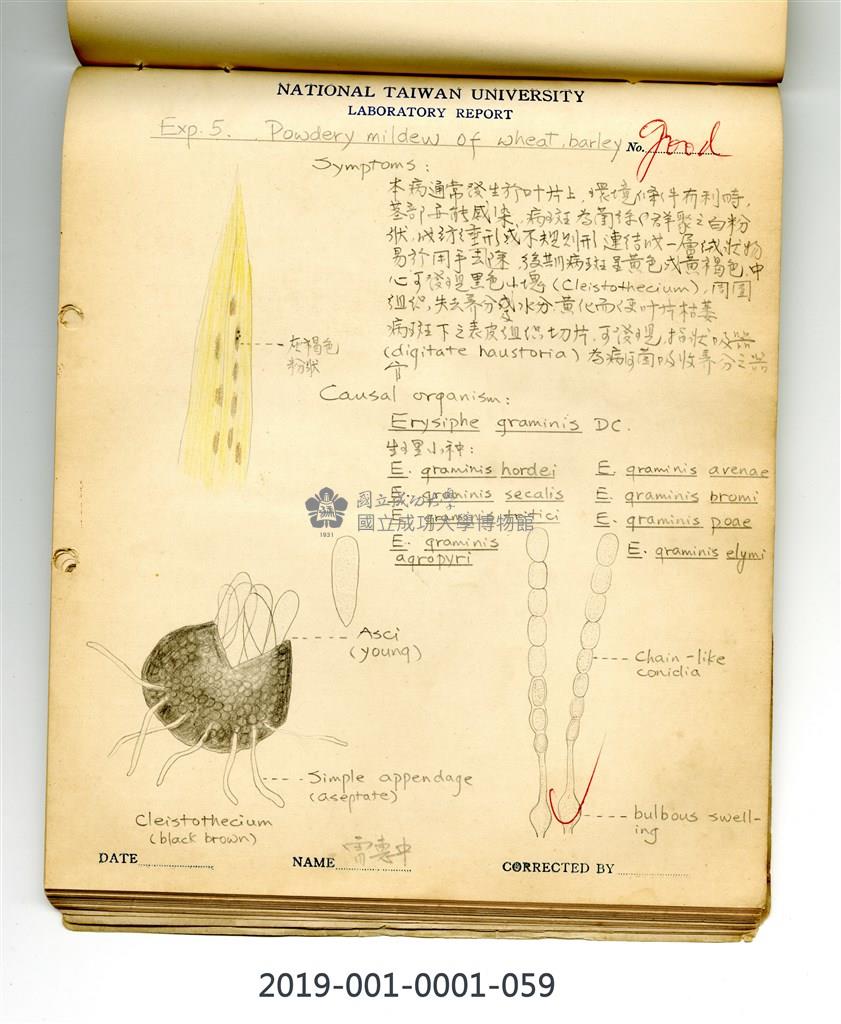 NATIONAL TAIWAN UNIVERSITY
LABORATORY REPORT
Exp. 5. Powdery mildew of wheat, barley No. good
Symptoms:
本病通常發生於叶片上,環境條件有利時,
莖部亦能感染,病斑為菌絲群聚之白粉
狀,成紡綞形或不規則形,連結成一層絨狀物
易於用手去除,後期病斑呈黃色或黃褐色,中
心可發現黑色小塊(Cleistothecium),周圍
組织,失去养分或水分,黄化而使叶片枯萎
病斑下之表皮組织切片,可發現,指状吸器
(digitate haustoria)為病菌吸收养分之器
官
灰褐色
粉状
Causal organism:
Erysiphe graminis DC.
生理小种:
E. graminis hordei E. graminis avenae
E. graminis secalis E. graminis bromi
E. graminis tritici E. graminis poae
E. graminis agropyri E. graminis elymi
國立成功大學
國立成功大學博物館
1931
Asci
(young)
Chain-like
conidia
Simple appendage
(aseptate)
bulbous swell-
ing
Cleistothecium
(black brown)
DATE NAME CORRECTED BY
2019-001-0001-059